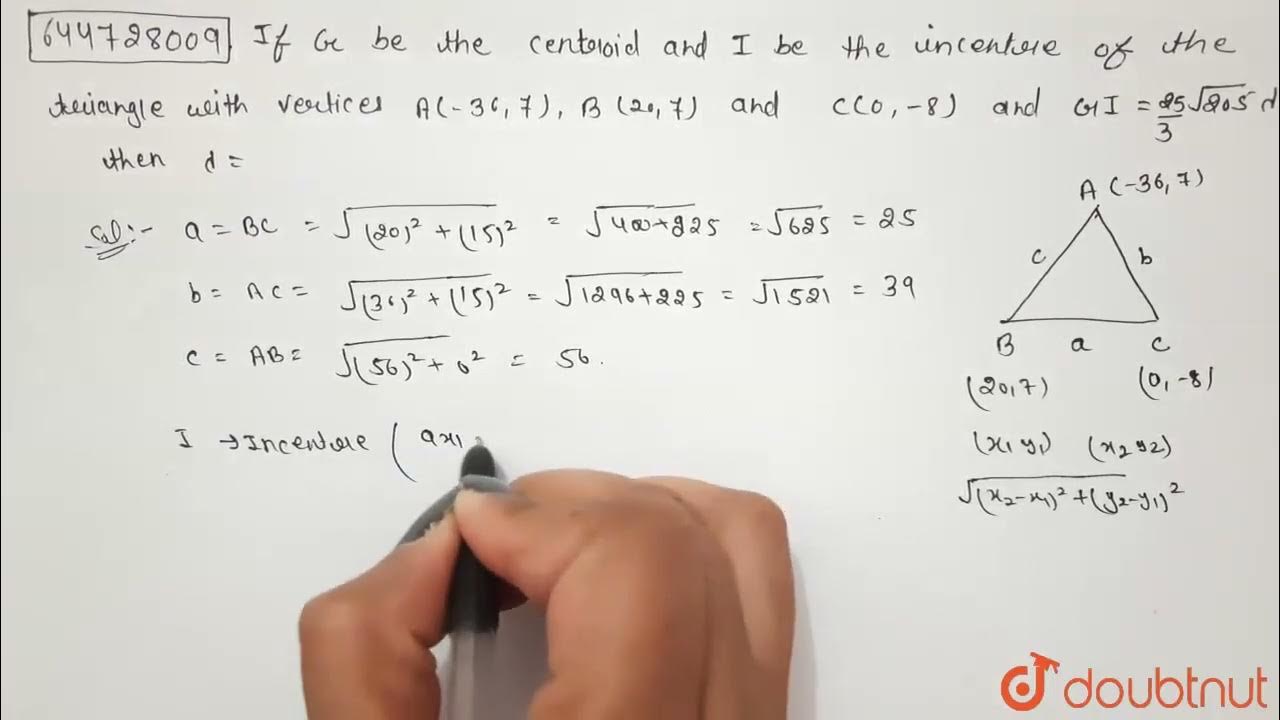 644728009 If G be the centroid and I be the incentre of the
triangle with vertices A(-36,7), B(20,7) and C(0,-8) and GI = 25/3 √205 d
then d =
Sol:- a = BC = √(20)² + (15)² = √400+225 = √625 = 25
b = AC = √(36)² + (15)² = √1296+225 = √1521 = 39
c = AB = √(56)² + 0² = 56.
I → Incentre ( ax₁
A (-36,7)
c b
B a C
(20,7) (0,-8)
(x₁ y₁) (x₂ y₂)
√(x₂-x₁)² + (y₂-y₁)²
doubtnut